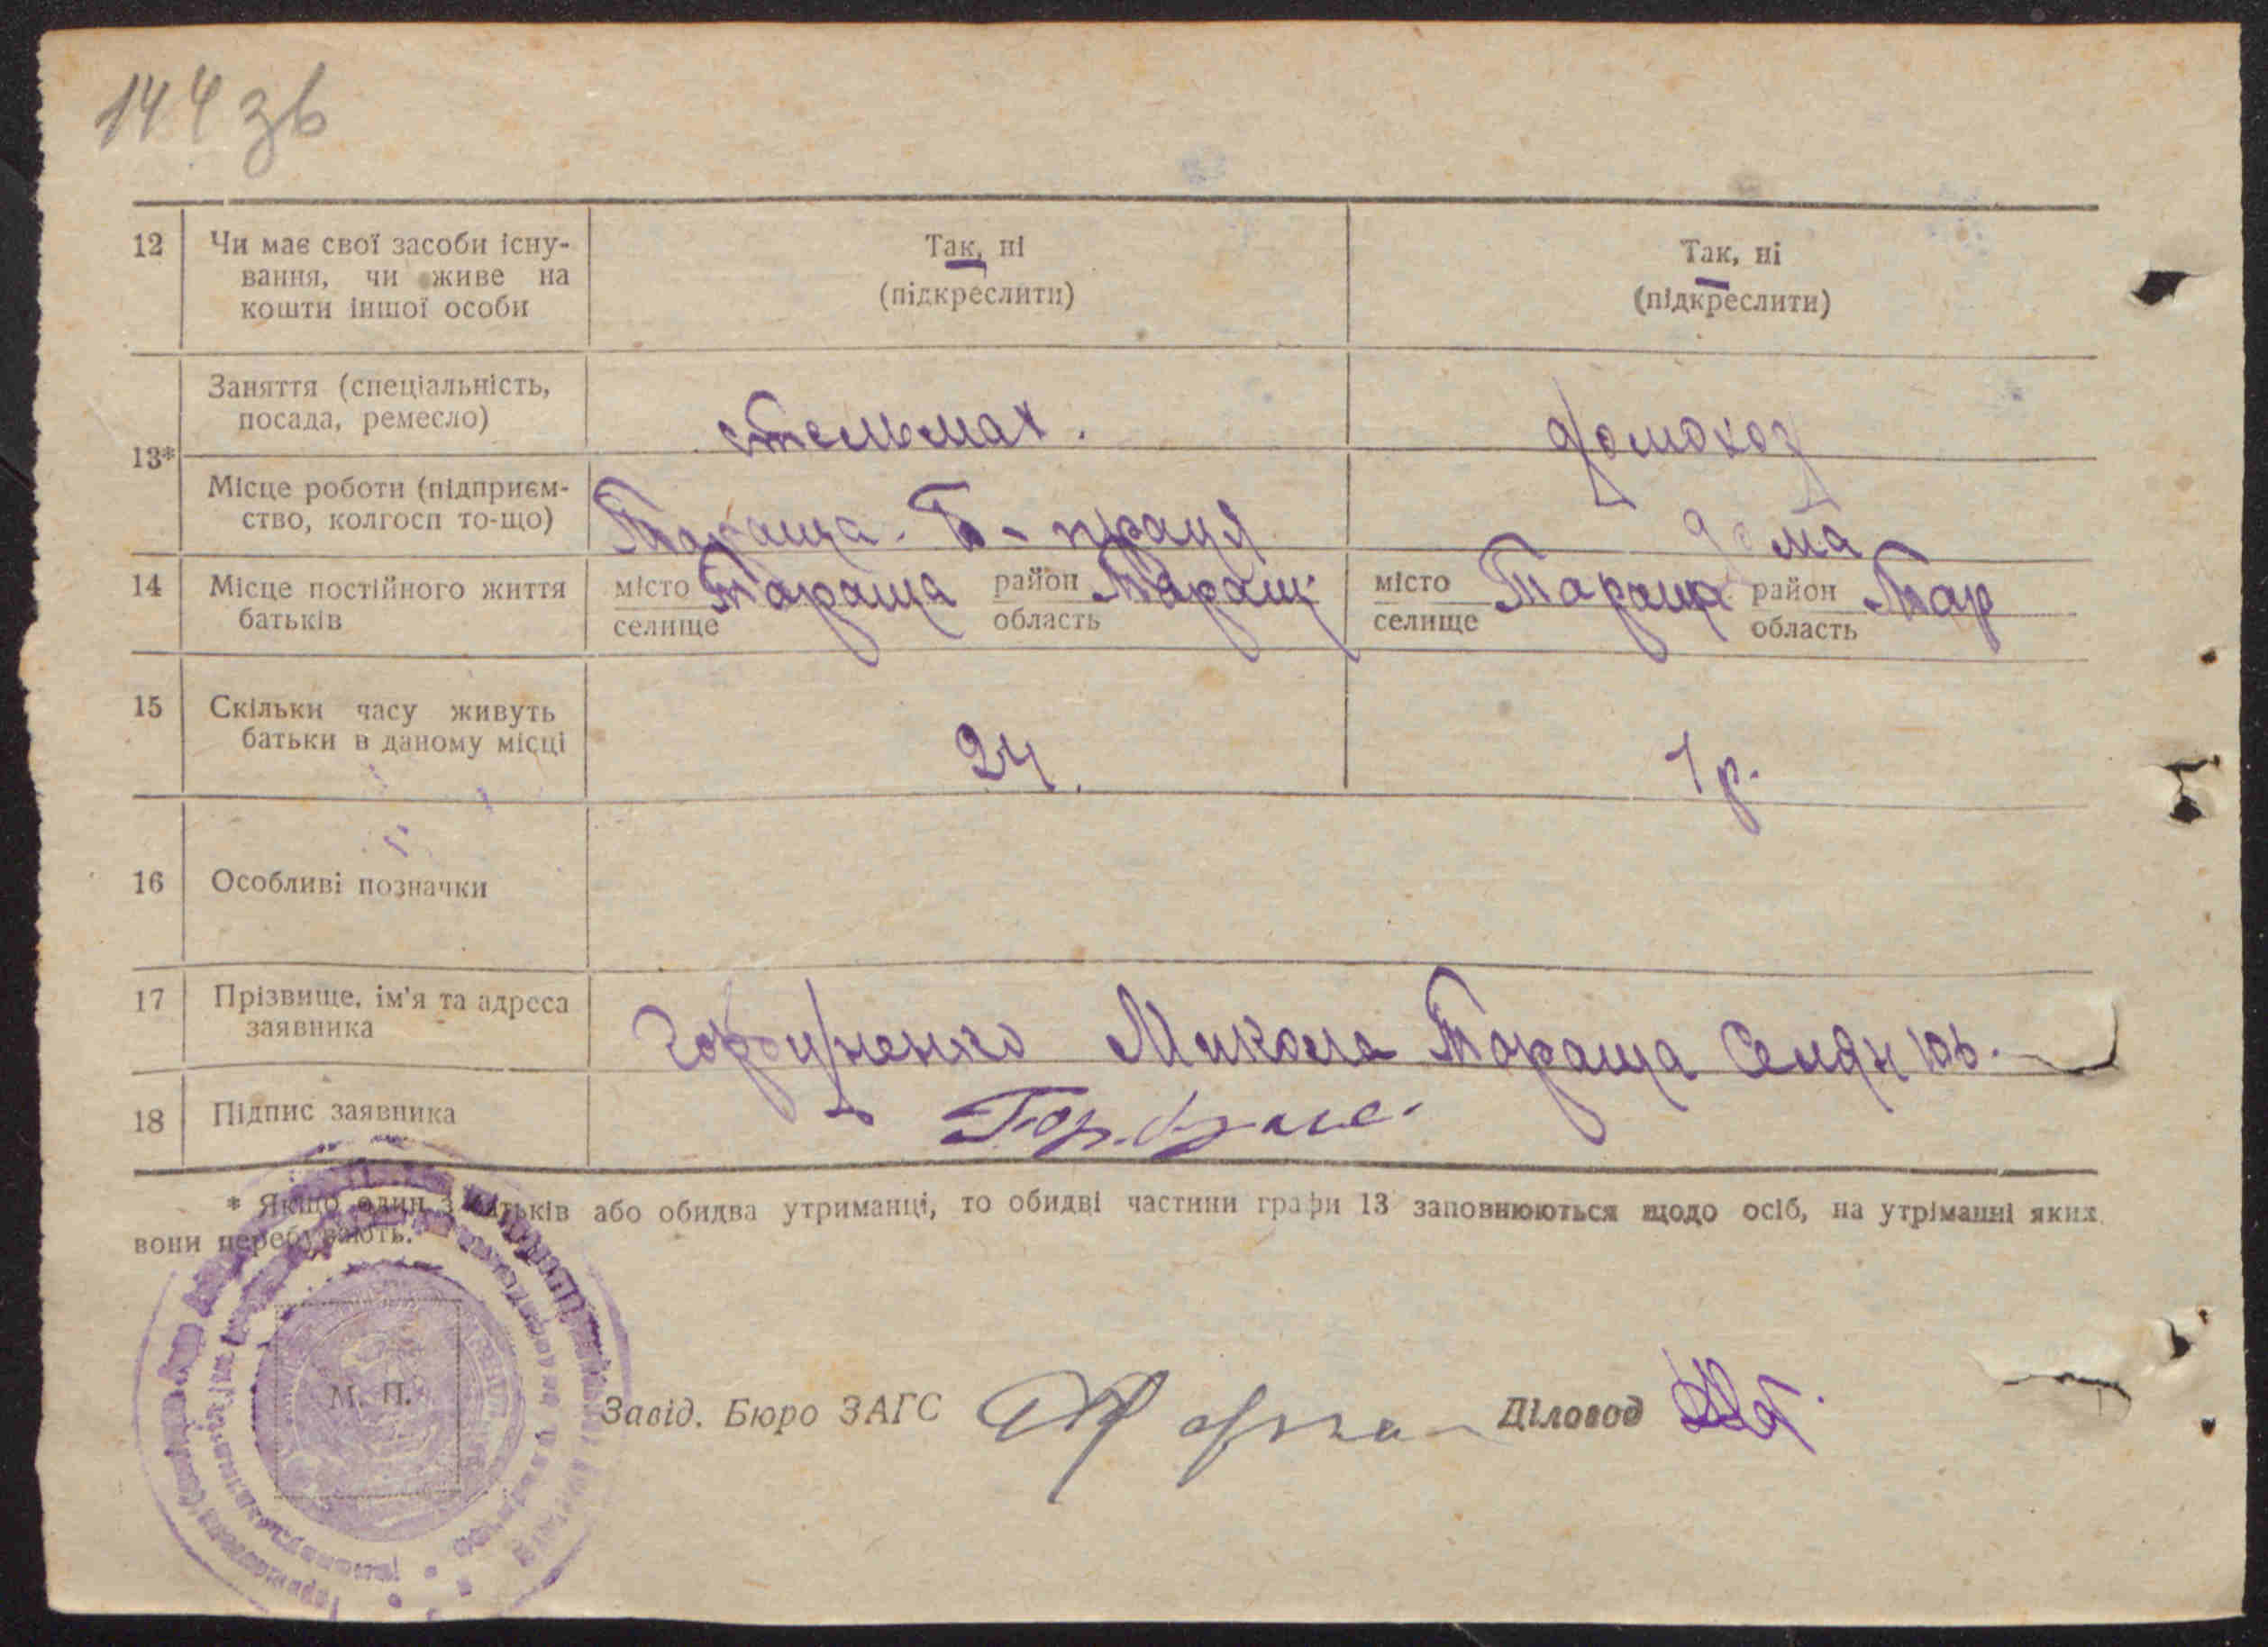 144 зв
12 Чи має свої засоби існу- Так, ні Так, ні
вання, чи живе на (підкреслити) (підкреслити)
кошти іншої особи
13* Заняття (спеціальність, стельмах. домохоз
посада, ремесло)
Місце роботи (підприєм- Тараща. праця дома
ство, колгосп то-що)
14 Місце постійного життя місто Тараща район Таращ місто Тараща район Тар
батьків селище область селище область
15 Скільки часу живуть 24. 1 р.
батьки в даному місці
16 Особливі позначки
17 Прізвище, ім'я та адреса Микола Тараща
заявника
18 Підпис заявника
* Якщо один з батьків або обидва утриманці, то обидві частини графи 13 заповнюються щодо осіб, на утріманні яких
вони перебувають.
М. П.
Завід. Бюро ЗАГС Діловод